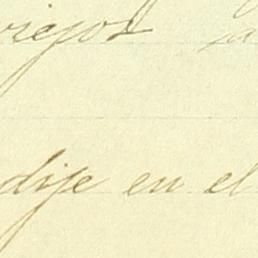 viejos
dije en el